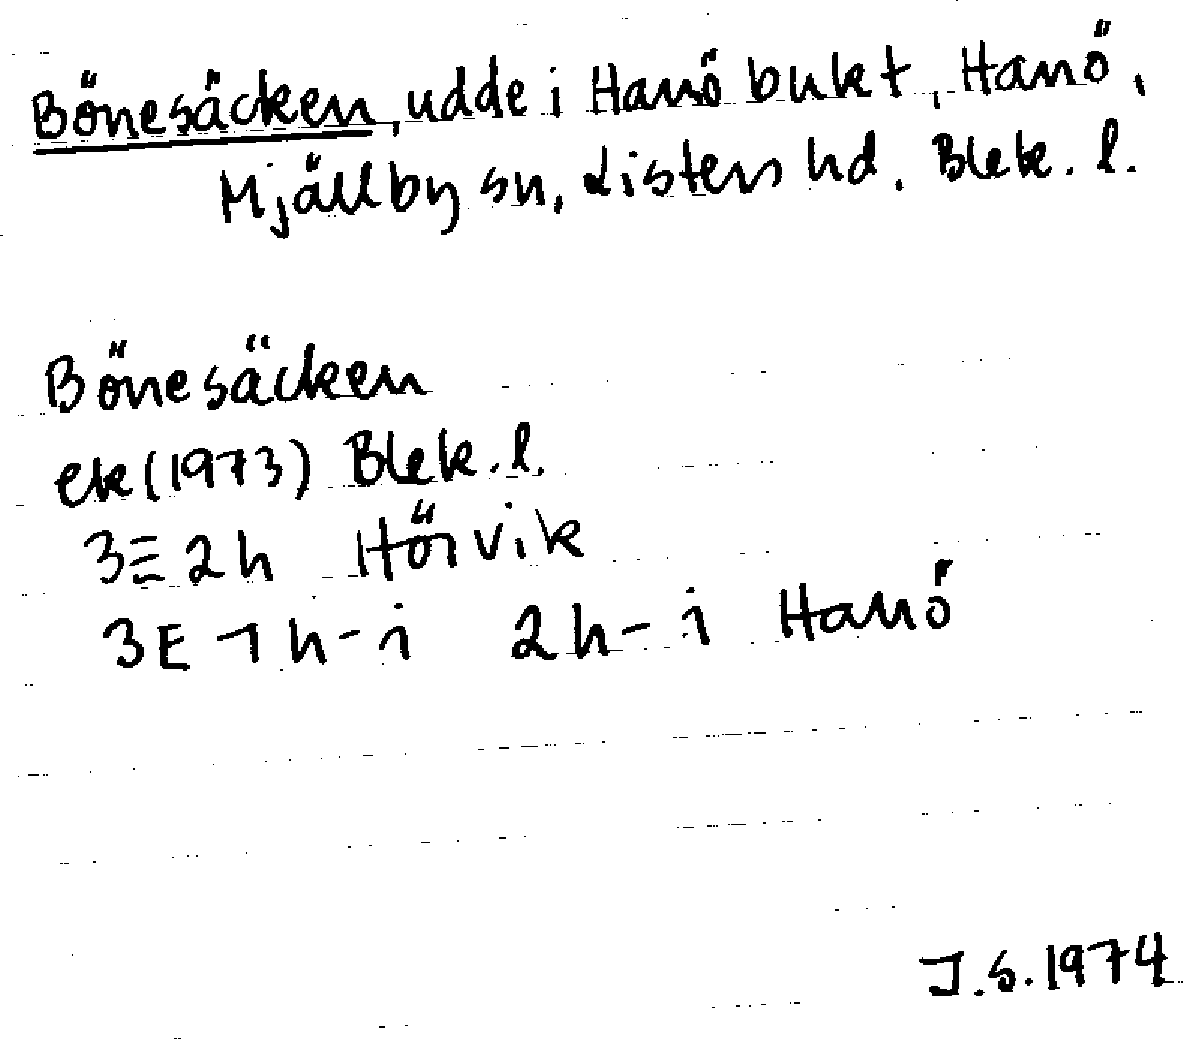 Bönesäcken, udde i Hanö bukt, Hanö,
Mjällby sn, Listers hd. Blek. l.
Bönesäcken
ek (1973) Blek. l.
3Ξ 2h Hörvik
3E 1h-i 2h-i Hanö
J.S. 1974